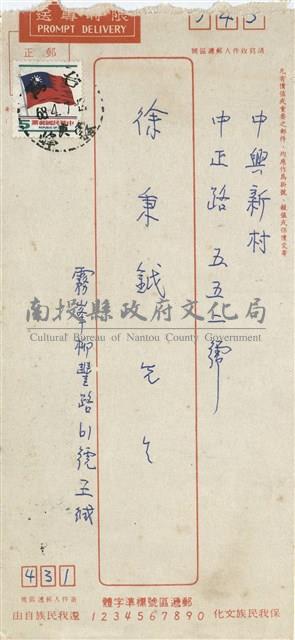 限時專送
PROMPT DELIVERY
545
請寫收件人郵遞區號
凡有價值或重要之郵件，均應作為掛號、報值或保價交寄
正
郵
中興新村
中正路 五五五號
徐秉鉞先生
霧峯柳豐路61號王緘
南投縣政府文化局
Cultural Bureau of Nantou County Government
431
寄件人郵遞區號
郵遞區號標準字體
1234567890
還我民族自由
保我民族文化